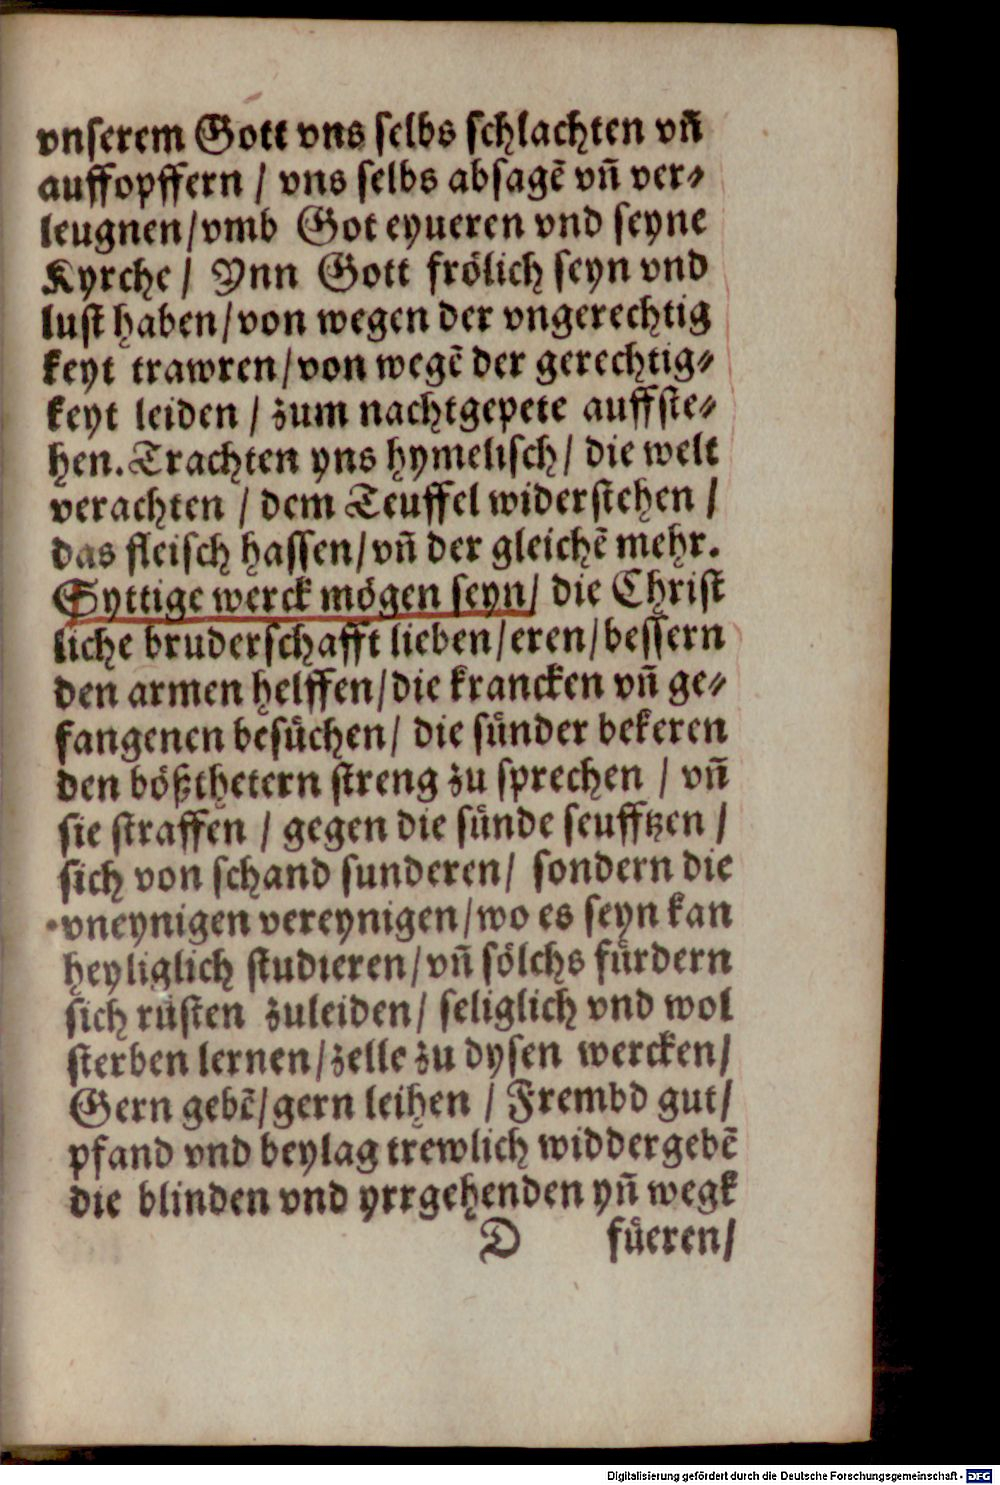 vnserem Gott vns selbs schlachten vñ
auffopffern / vns selbs absagē vñ ver⸗
leugnen/vmb Got eyueren vnd seyne
Kyrche / Ynn Gott frölich seyn vnd
lust haben/von wegen der vngerechtig
keyt trawren/von wegē der gerechtig⸗
keyt leiden / zum nachtgepete auffste⸗
hen. Trachten yns hymelisch/ die welt
verachten / dem Teuffel widerstehen /
das fleisch hassen/vñ der gleichē mehr.
Syttige werck mögen seyn/ die Christ
liche bruderschafft lieben/eren/bessern
den armen helffen/die krancken vñ ge⸗
fangenen besůchen/ die sünder bekeren
den bößthetern streng zu sprechen / vñ
sie straffen / gegen die sünde seufftzen /
sich von schand sunderen/ sondern die
vneynigen vereynigen/wo es seyn kan
heyliglich studieren/vñ sölchs fürdern
sich rüsten zuleiden/ seliglich vnd wol
sterben lernen/zelle zu dysen wercken/
Gern gebē/gern leihen / Frembd gut/
pfand vnd beylag trewlich widdergebē
die blinden vnd yrrgehenden yñ wegk
D füeren/
Digitalisierung gefördert durch die Deutsche Forschungsgemeinschaft - DFG